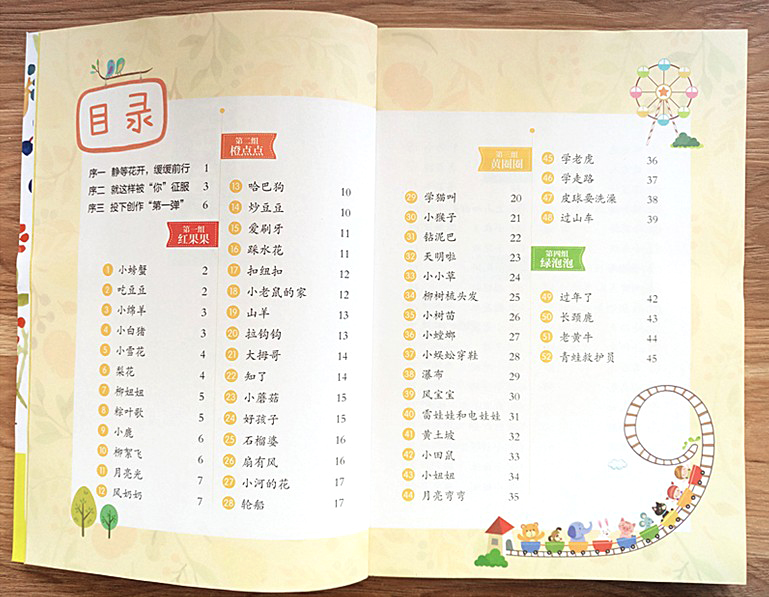 目录
序一 静等花开，缓缓前行 1
序二 就这样被“你”征服 3
序三 投下创作“第一弹” 6
第一组
红果果
1 小螃蟹 2
2 吃豆豆 2
3 小绵羊 3
4 小白猪 3
5 小雪花 4
6 梨花 4
7 柳妞妞 5
8 粽叶歌 5
9 小鹿 6
10 柳絮飞 6
11 月亮光 7
12 风奶奶 7
第二组
橙点点
13 哈巴狗 10
14 炒豆豆 10
15 爱刷牙 11
16 踩水花 11
17 扣纽扣 12
18 小老鼠的家 12
19 山羊 13
20 拉钩钩 13
21 大拇哥 14
22 知了 14
23 小蘑菇 15
24 好孩子 15
25 石榴婆 16
26 扇有风 16
27 小河的花 17
28 轮船 17
第三组
黄圈圈
29 学猫叫 20
30 小猴子 21
31 钻泥巴 22
32 天明啦 23
33 小小草 24
34 柳树梳头发 25
35 小树苗 26
36 小螳螂 27
37 小蜈蚣穿鞋 28
38 瀑布 29
39 风宝宝 30
40 雷娃娃和电娃娃 31
41 黄土坡 32
42 小田鼠 33
43 小妞妞 34
44 月亮弯弯 35
45 学老虎 36
46 学走路 37
47 皮球要洗澡 38
48 过山车 39
第四组
绿泡泡
49 过年了 42
50 长颈鹿 43
51 老黄牛 44
52 青蛙救护员 45